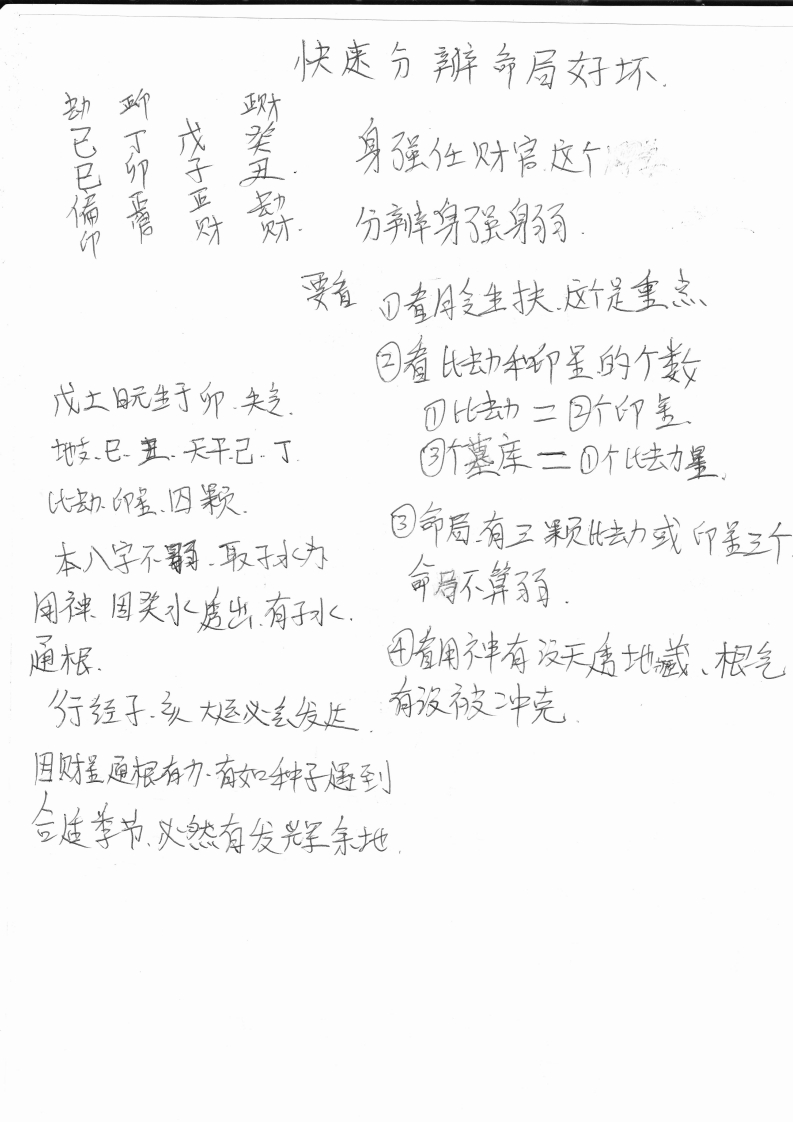 快速分辨命局好坏.
劫 正印 正财
己 丁 戊 癸
巳 卯 子 丑.
偏印 正官 正财 劫财.
身强任财官.这个
分辨身强身弱.
要看 ①看月令生扶.这个是重点、
②看比劫和印星的个数
①比劫=②个印星.
③个墓库=①个比劫力量.
③命局.有三颗比劫或印星三个.
命局不算弱.
④看用神有没天透地藏、根气
有没被冲克.
戊土日元生于卯.失令.
地支.巳.丑.天干.己.丁.
比劫.印星.四颗.
本八字不弱.取子水为
用神.因癸水透出.有子水.
通根.
行经子.亥大运必会发达.
因财星通根有力.有如种子遇到
合适季节.必然有发光余地.